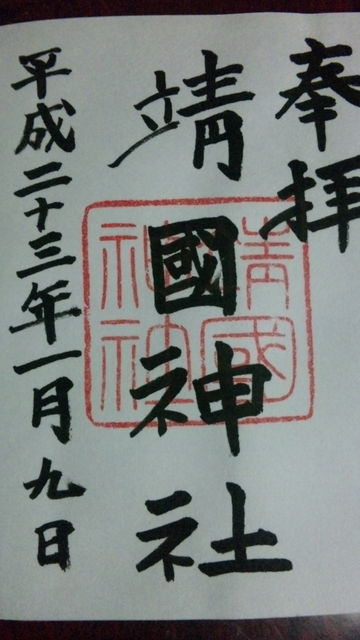 奉拝
靖國神社
靖國
神社
平成二十三年一月九日